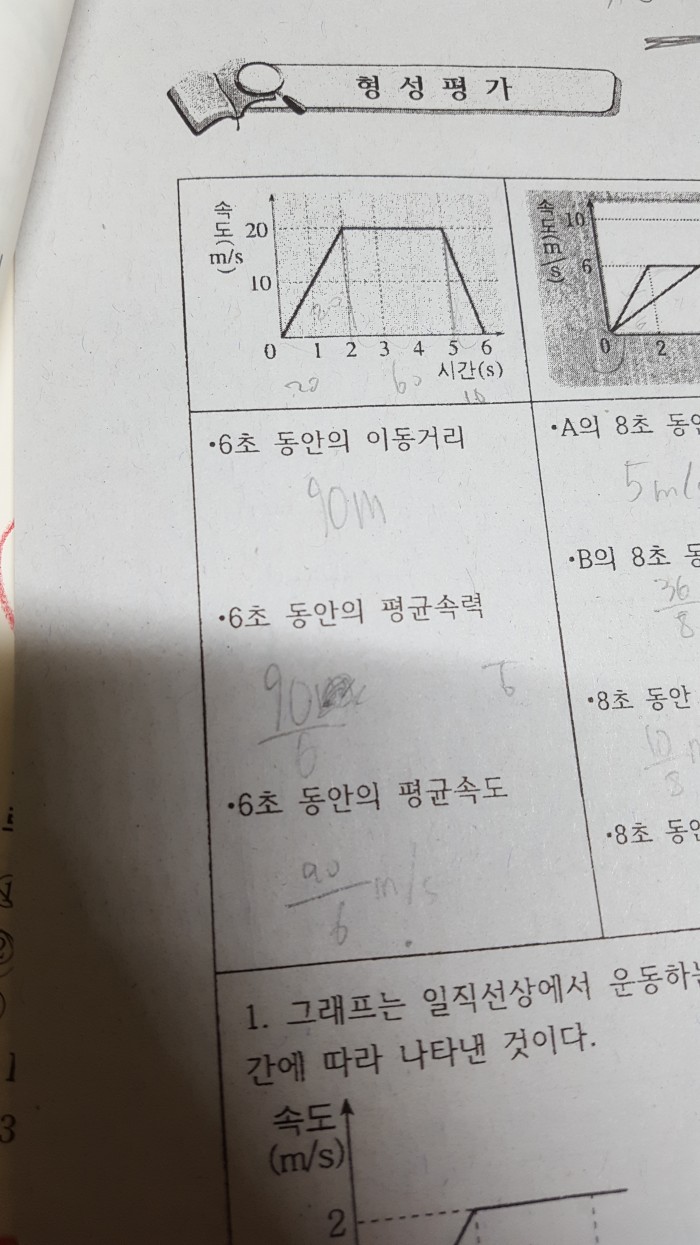 형성평가
속도(m/s)
20
10
0 1 2 3 4 5 6
시간(s)
20 60 10
•6초 동안의 이동거리
90m
•6초 동안의 평균속력
90
6
•6초 동안의 평균속도
90
6 m/s
속도(m/s)
10
6
0 2
•A의 8초 동안
5m/
•B의 8초 동
36
8
•8초 동안
8
•8초 동안
1. 그래프는 일직선상에서 운동하는
간에 따라 나타낸 것이다.
속도
(m/s)
2